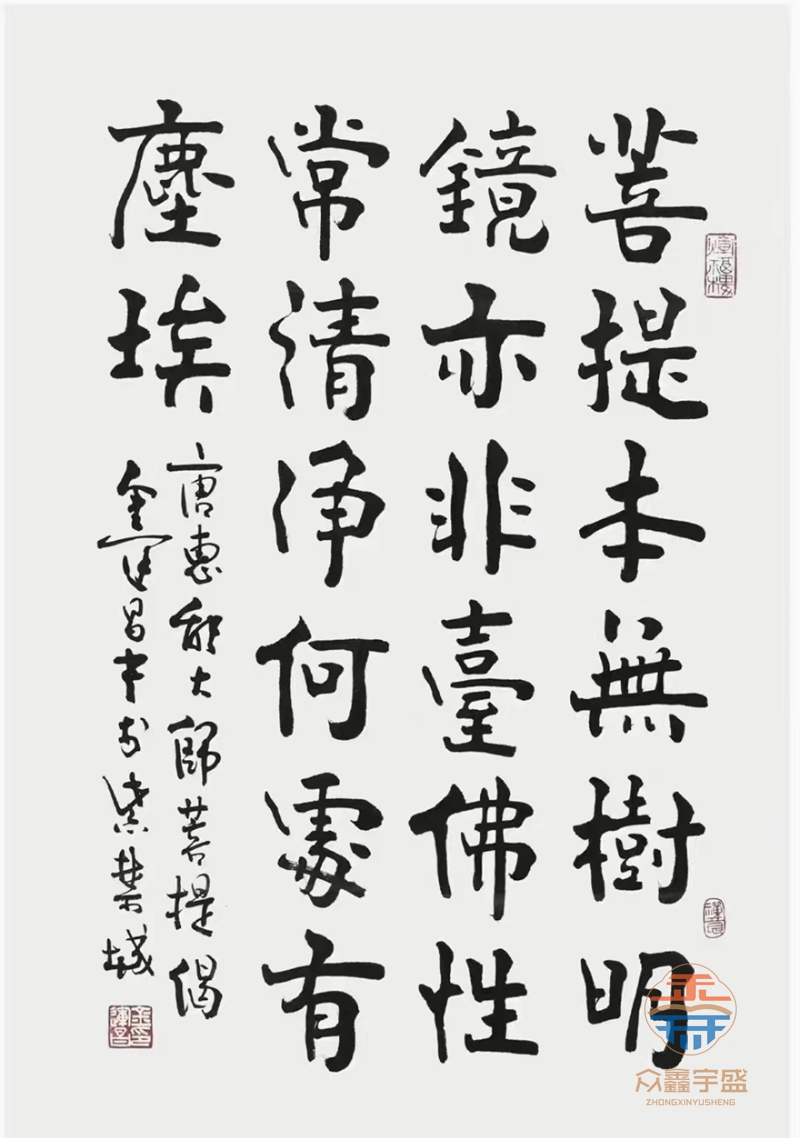 菩提本無樹明
鏡亦非臺佛性
常清淨何處有
塵埃
唐惠能大師菩提偈
金運昌書於紫禁城
金印運昌
众鑫宇盛
ZHONGXINYUSHENG